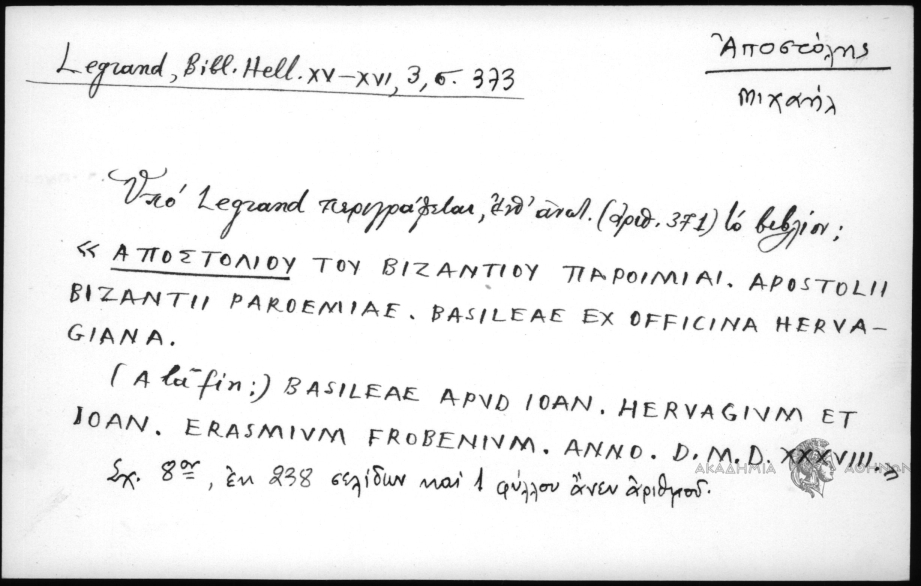 Legrand, Bibl. Hell. XV–XVI, 3, σ. 373
Ἀποστόλης
Μιχαήλ
Ὑπό Legrand περιγράφεται, ὑπ' ἀριθ. (ἀριθ. 371) τό βιβλίον:
« ΑΠΟΣΤΟΛΙΟΥ ΤΟΥ ΒΙΖΑΝΤΙΟΥ ΠΑΡΟΙΜΙΑΙ. APOSTOLII
BIZANTII PAROEMIAE. BASILEAE EX OFFICINA HERVA–
GIANA.
(A la fin:) BASILEAE APUD IOAN. HERVAGIUM ET
IOAN. ERASMIUM FROBENIUM. ANNO. D. M. D. XXXVIII. »
Σχ. 8ον, ἐκ 238 σελίδων καί 1 φύλλου ἄνευ ἀριθμοῦ.
ΑΚΑΔΗΜΙΑ ΑΘΗΝΩΝ